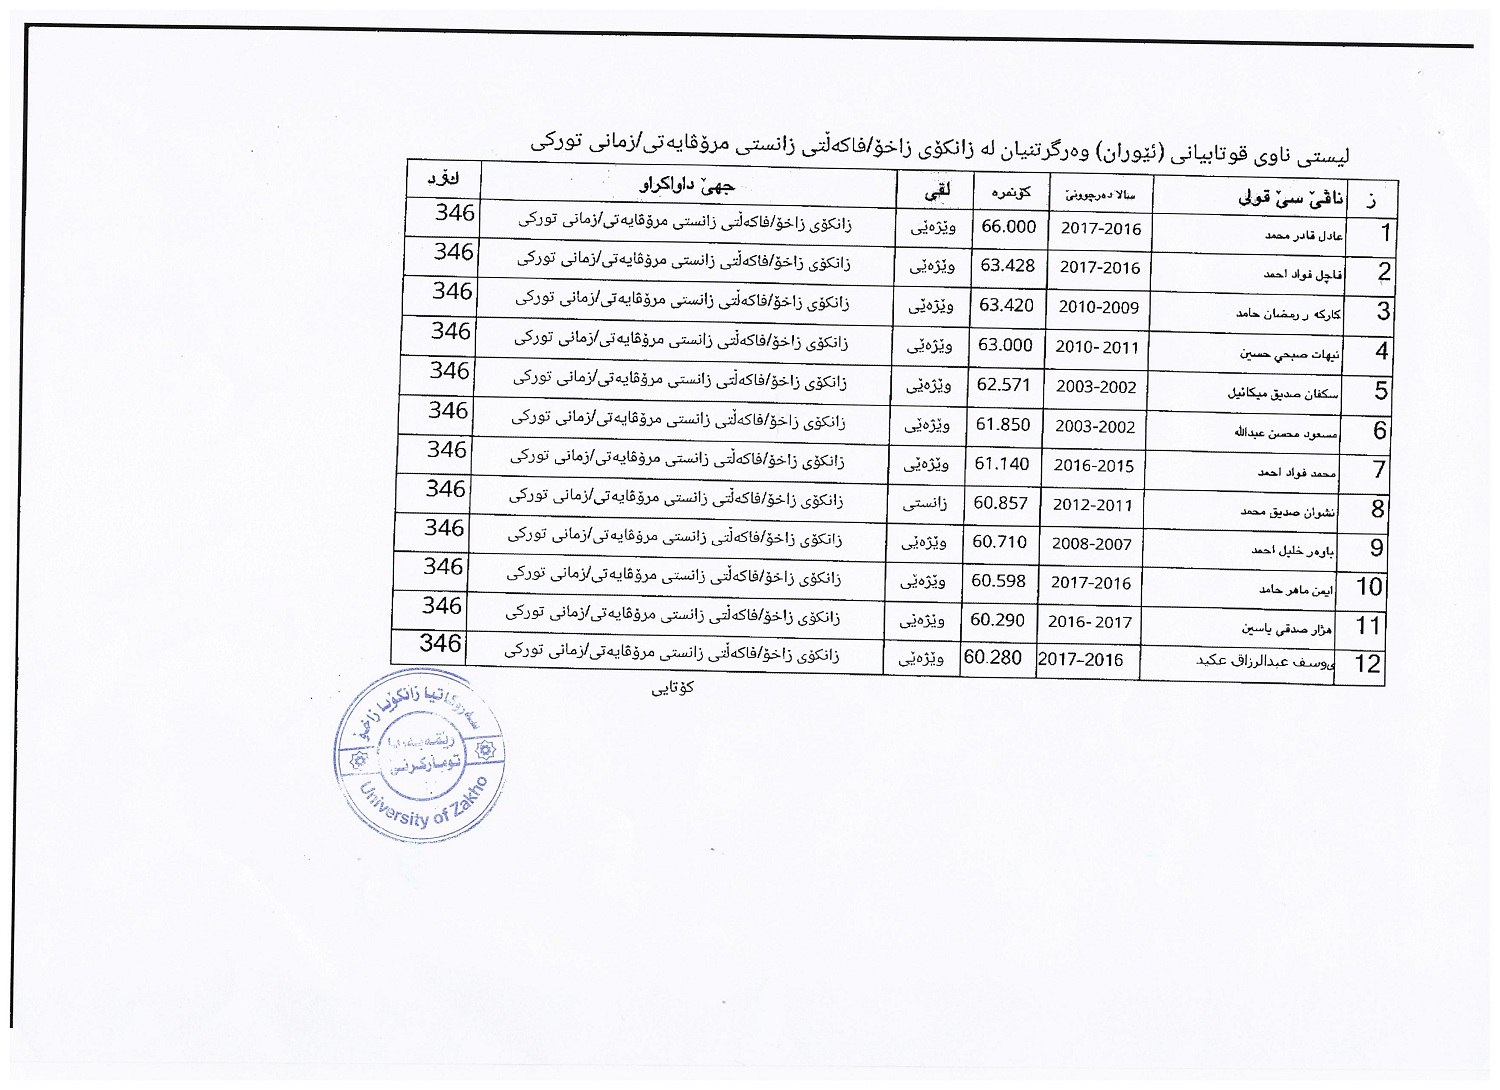 لیستی ناوی قوتابیانی (ئێوران) وەرگرتنیان لە زانکۆی زاخۆ/فاکەڵتی زانستی مرۆڤایەتی/زمانی تورکی
ز ناڤێ سێ قولی سالا دەرچوونێ کۆنمرە لقی جهێ داواکراو کۆد
1 عادل قادر محمد 2017-2016 66.000 وێژەیی زانکۆی زاخۆ/فاکەڵتی زانستی مرۆڤایەتی/زمانی تورکی 346
2 ڤاچل فواد احمد 2017-2016 63.428 وێژەیی زانکۆی زاخۆ/فاکەڵتی زانستی مرۆڤایەتی/زمانی تورکی 346
3 کارکە ر رمضان حامد 2010-2009 63.420 وێژەیی زانکۆی زاخۆ/فاکەڵتی زانستی مرۆڤایەتی/زمانی تورکی 346
4 نیهات صبحي حسین 2010-2011 63.000 وێژەیی زانکۆی زاخۆ/فاکەڵتی زانستی مرۆڤایەتی/زمانی تورکی 346
5 سکفان صدیق میکائیل 2003-2002 62.571 وێژەیی زانکۆی زاخۆ/فاکەڵتی زانستی مرۆڤایەتی/زمانی تورکی 346
6 مسعود محسن عبدالله 2003-2002 61.850 وێژەیی زانکۆی زاخۆ/فاکەڵتی زانستی مرۆڤایەتی/زمانی تورکی 346
7 محمد فواد احمد 2016-2015 61.140 وێژەیی زانکۆی زاخۆ/فاکەڵتی زانستی مرۆڤایەتی/زمانی تورکی 346
8 نشوان صدیق محمد 2012-2011 60.857 زانستی زانکۆی زاخۆ/فاکەڵتی زانستی مرۆڤایەتی/زمانی تورکی 346
9 بارەر خلیل احمد 2008-2007 60.710 وێژەیی زانکۆی زاخۆ/فاکەڵتی زانستی مرۆڤایەتی/زمانی تورکی 346
10 ایمن ماهر حامد 2017-2016 60.598 وێژەیی زانکۆی زاخۆ/فاکەڵتی زانستی مرۆڤایەتی/زمانی تورکی 346
11 هژار صدقي یاسین 2016-2017 60.290 وێژەیی زانکۆی زاخۆ/فاکەڵتی زانستی مرۆڤایەتی/زمانی تورکی 346
12 یوسف عبدالرزاق عکید 2017-2016 60.280 وێژەیی زانکۆی زاخۆ/فاکەڵتی زانستی مرۆڤایەتی/زمانی تورکی 346
کۆتایی
سەروکاتیا زانکۆیا زاخۆ
رێڤەبەریا
تومارکرنێ
University of Zakho